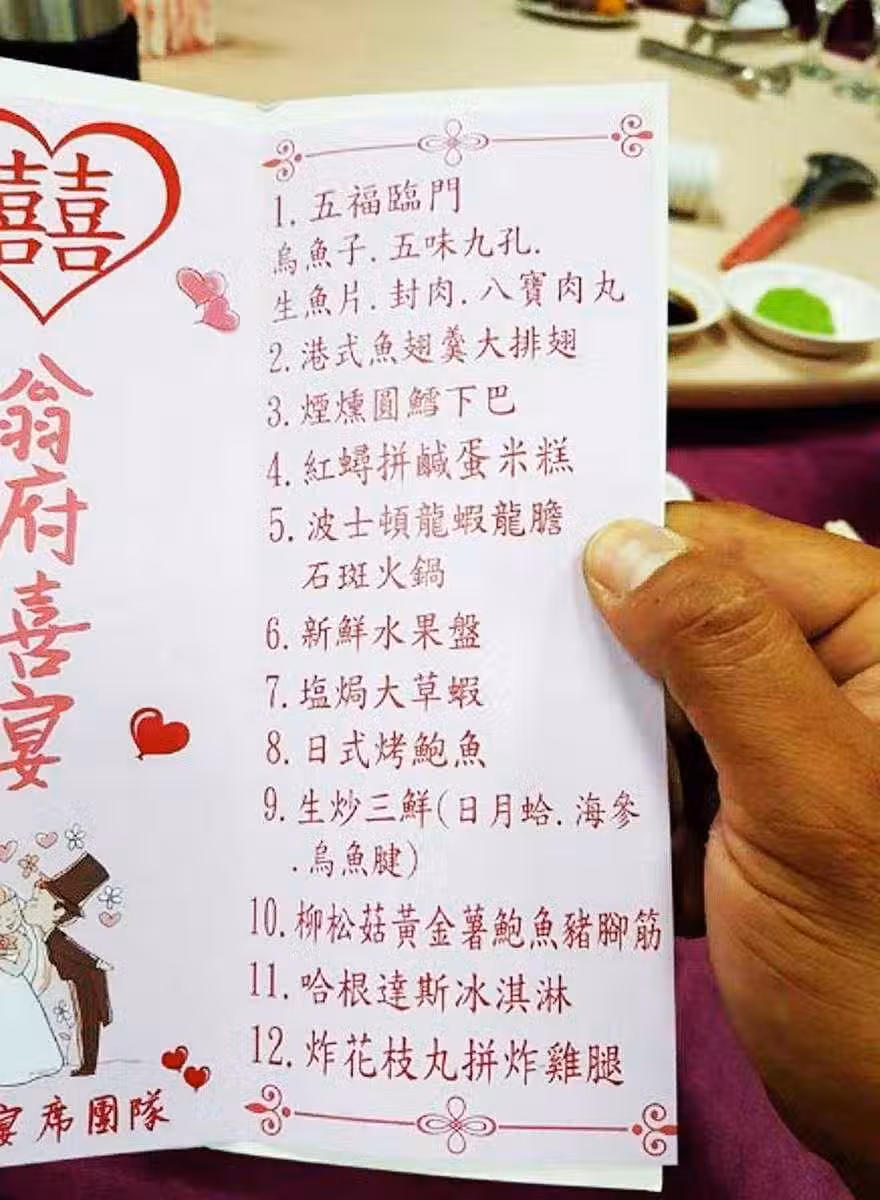 囍
翁府喜宴
宴席團隊
1.五福臨門
烏魚子.五味九孔.
生魚片.封肉.八寶肉丸
2.港式魚翅羹大排翅
3.煙燻圓鱈下巴
4.紅蟳拼鹹蛋米糕
5.波士頓龍蝦龍膽
石斑火鍋
6.新鮮水果盤
7.塩焗大草蝦
8.日式烤鮑魚
9.生炒三鮮(日月蛤.海參
.烏魚腱)
10.柳松菇黃金薯鮑魚豬腳筋
11.哈根達斯冰淇淋
12.炸花枝丸拼炸雞腿